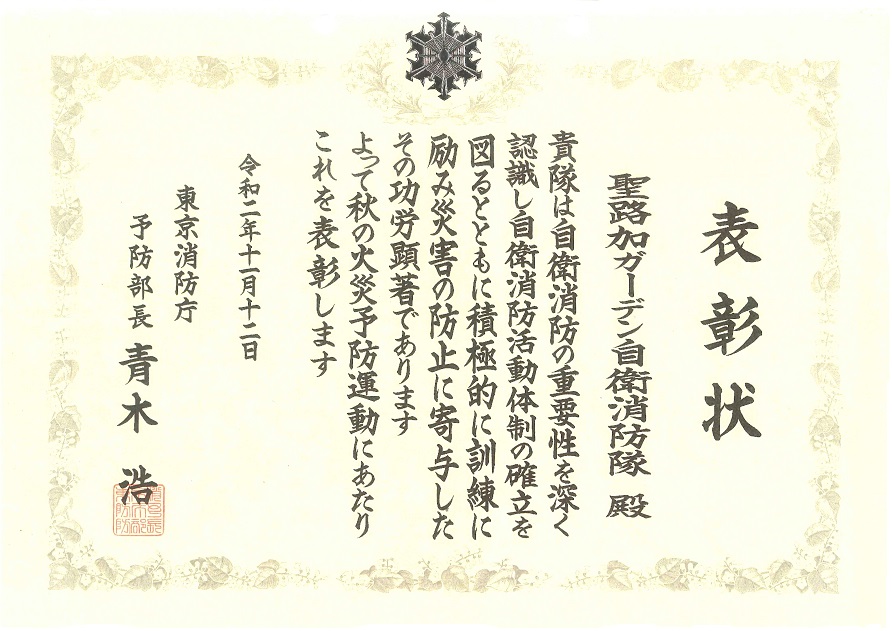 表彰状
聖路加ガーデン自衛消防隊 殿
貴隊は自衛消防の重要性を深く
認識し自衛消防活動体制の確立を
図るとともに積極的に訓練に
励み災害の防止に寄与した
その功労顕著であります
よって秋の火災予防運動にあたり
これを表彰します
令和二年十一月十二日
東京消防庁
予防部長 青木 浩